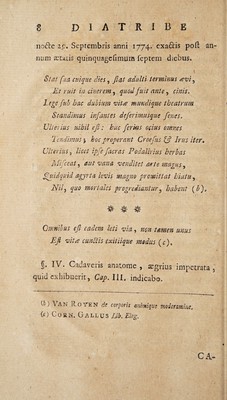 8 DIATRIBE
nocte 25. Septembris anni 1774. exactis post an-
num ætatis quinquagesimum septem diebus.
Stat sua cuique dies, stat adulti terminus ævi,
Et ruit in cinerem, quod fuit ante, cinis.
Lege sub hac dubium vitæ mundique theatrum
Scandimus infantes deserimusque senes.
Ulterius nihil est: huc serius ocius omnes
Tendimus; hoc properant Crœsus & Irus iter.
Ulterius, licet ipse sacras Podalirius herbas
Misceat, aut vana venditet arte magus,
Quidquid agyrta levis magno promittat hiatu,
Nil, quo mortales progrediantur, habent (b).
* * *
Omnibus est eadem leti via, non tamen unus
Est vitæ cunctis exitiique modus (c).
§. IV. Cadaveris anatome, ægrius impetrata,
quid exhibuerit, Cap. III. indicabo.
(b) VAN ROYEN de corporis animique moderamine.
(c) CORN. GALLUS Lib. Eleg.
CA-